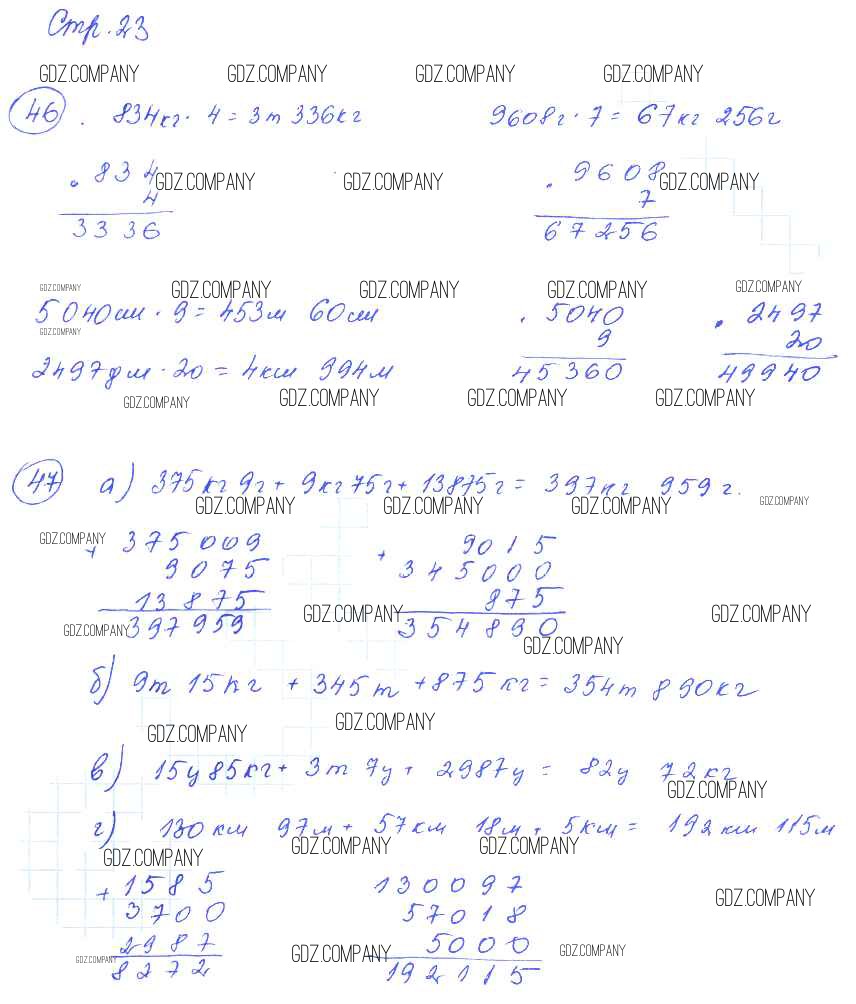 Стр. 23
GDZ.COMPANY GDZ.COMPANY GDZ.COMPANY GDZ.COMPANY
46 . 834кг · 4 = 3т 336кг 9608г · 7 = 67кг 256г
· 834 · 9608
GDZ.COMPANY GDZ.COMPANY GDZ.COMPANY
4 7
3336 67256
GDZ.COMPANY GDZ.COMPANY GDZ.COMPANY GDZ.COMPANY GDZ.COMPANY
5040см · 9 = 453м 60см · 5040 · 2497
GDZ.COMPANY
9 20
2497дм · 20 = 4км 994м 45360 49940
GDZ.COMPANY GDZ.COMPANY GDZ.COMPANY GDZ.COMPANY
47 а) 375кг 9г + 9кг 75г + 13875г = 397кг 959г.
GDZ.COMPANY GDZ.COMPANY GDZ.COMPANY GDZ.COMPANY
GDZ.COMPANY
+ 375009 + 9015
9075 345000
13875 875
GDZ.COMPANY GDZ.COMPANY
397959 354890
GDZ.COMPANY GDZ.COMPANY
б) 9т 15кг + 345т + 875кг = 354т 890кг
GDZ.COMPANY GDZ.COMPANY
в) 15ц 85кг + 3т 7ц + 2987ц = 82ц 72кг
GDZ.COMPANY
г) 130км 97м + 57км 18м + 5км = 192км 115м
GDZ.COMPANY GDZ.COMPANY GDZ.COMPANY
+ 1585 130097
GDZ.COMPANY
3700 57018
2987 5000
GDZ.COMPANY GDZ.COMPANY GDZ.COMPANY
8272 192115